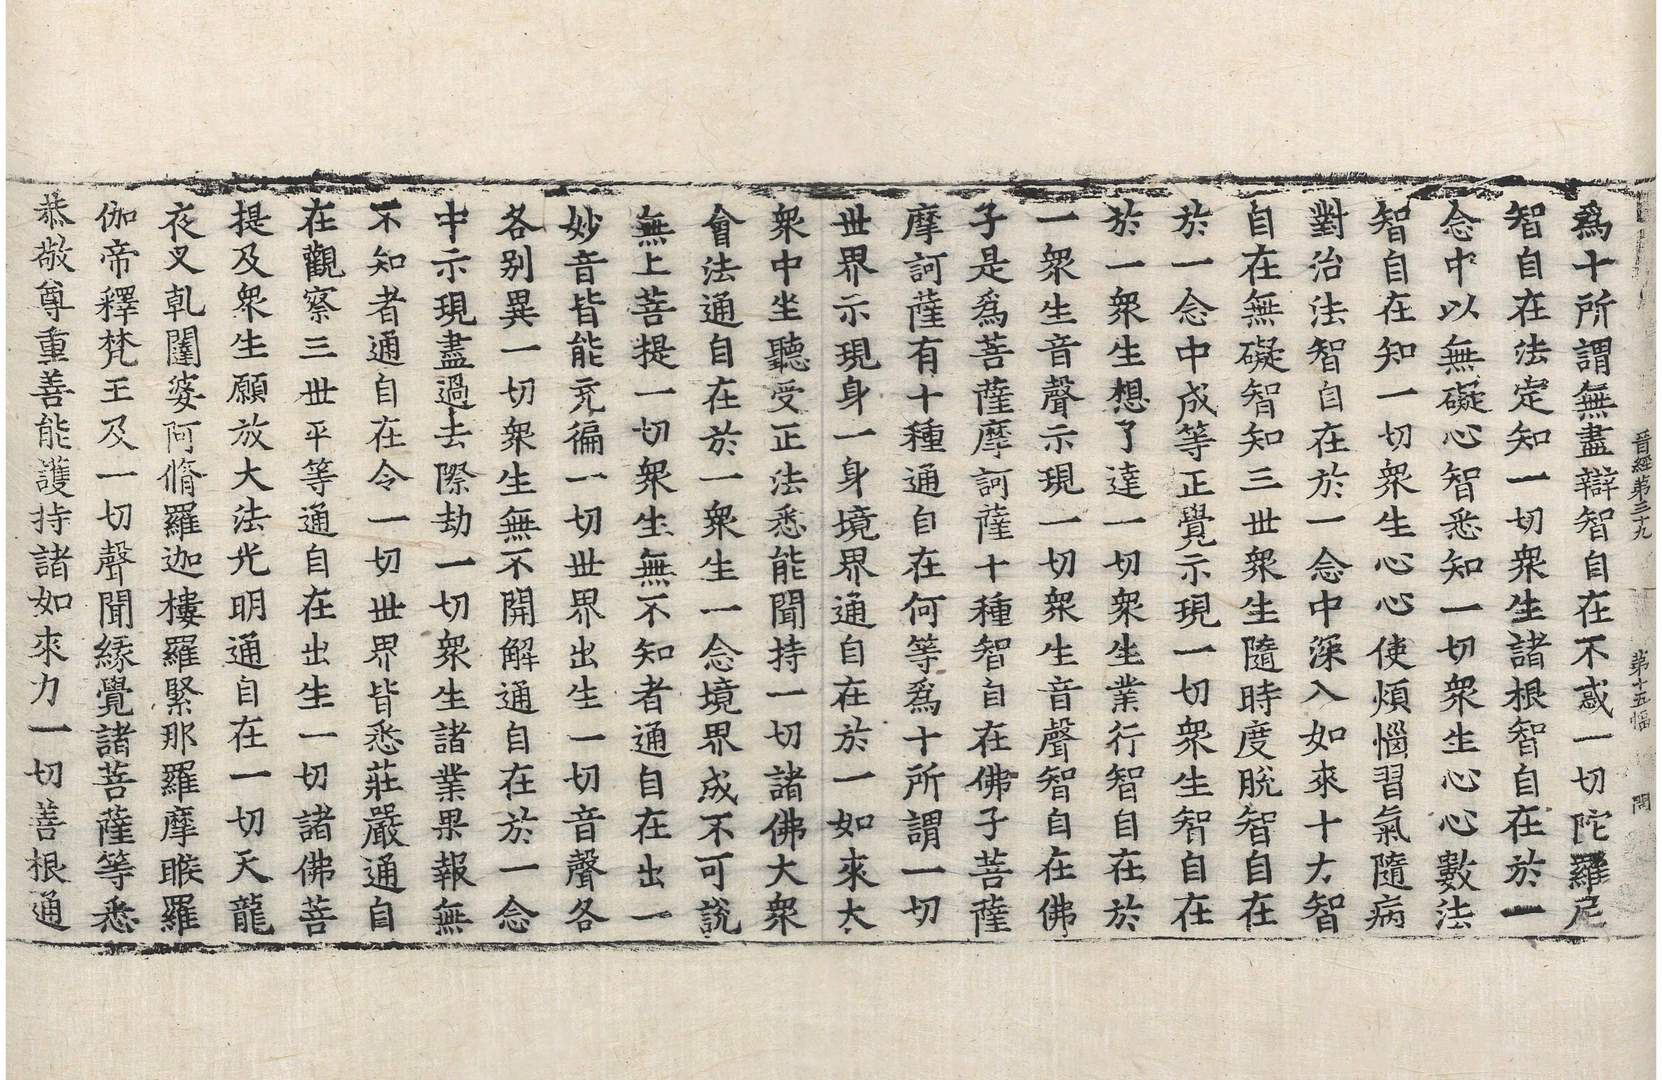 晉經第三十九　第十五幅　問
爲十所謂無盡辯智自在不惑一切陀羅尼
智自在法定知一切衆生諸根智自在於一
念中以無礙心智悉知一切衆生心心數法
智自在知一切衆生心心使煩惱習氣隨病
對治法智自在於一念中深入如來十力智
自在無礙智知三世衆生隨時度脫智自在
於一念中成等正覺示現一切衆生智自在
於一衆生想了達一切衆生業行智自在於
一衆生音聲示現一切衆生音聲智自在佛
子是爲菩薩摩訶薩十種智自在佛子菩薩
摩訶薩有十種通自在何等爲十所謂一切
世界示現身一身境界通自在於一如來大
衆中坐聽受正法悉能聞持一切諸佛大衆
會法通自在於一衆生一念境界成不可說
無上菩提一切衆生無不知者通自在出一
妙音皆能充徧一切世界出生一切音聲各
各別異一切衆生無不開解通自在於一念
中示現盡過去際劫一切衆生諸業果報無
不知者通自在令一切世界皆悉莊嚴通自
在觀察三世平等通自在出生一切諸佛菩
提及衆生願放大法光明通自在一切天龍
夜叉乹闥婆阿脩羅迦樓羅緊那羅摩睺羅
伽帝釋梵王及一切聲聞緣覺諸菩薩等悉
恭敬尊重善能護持諸如來力一切善根通